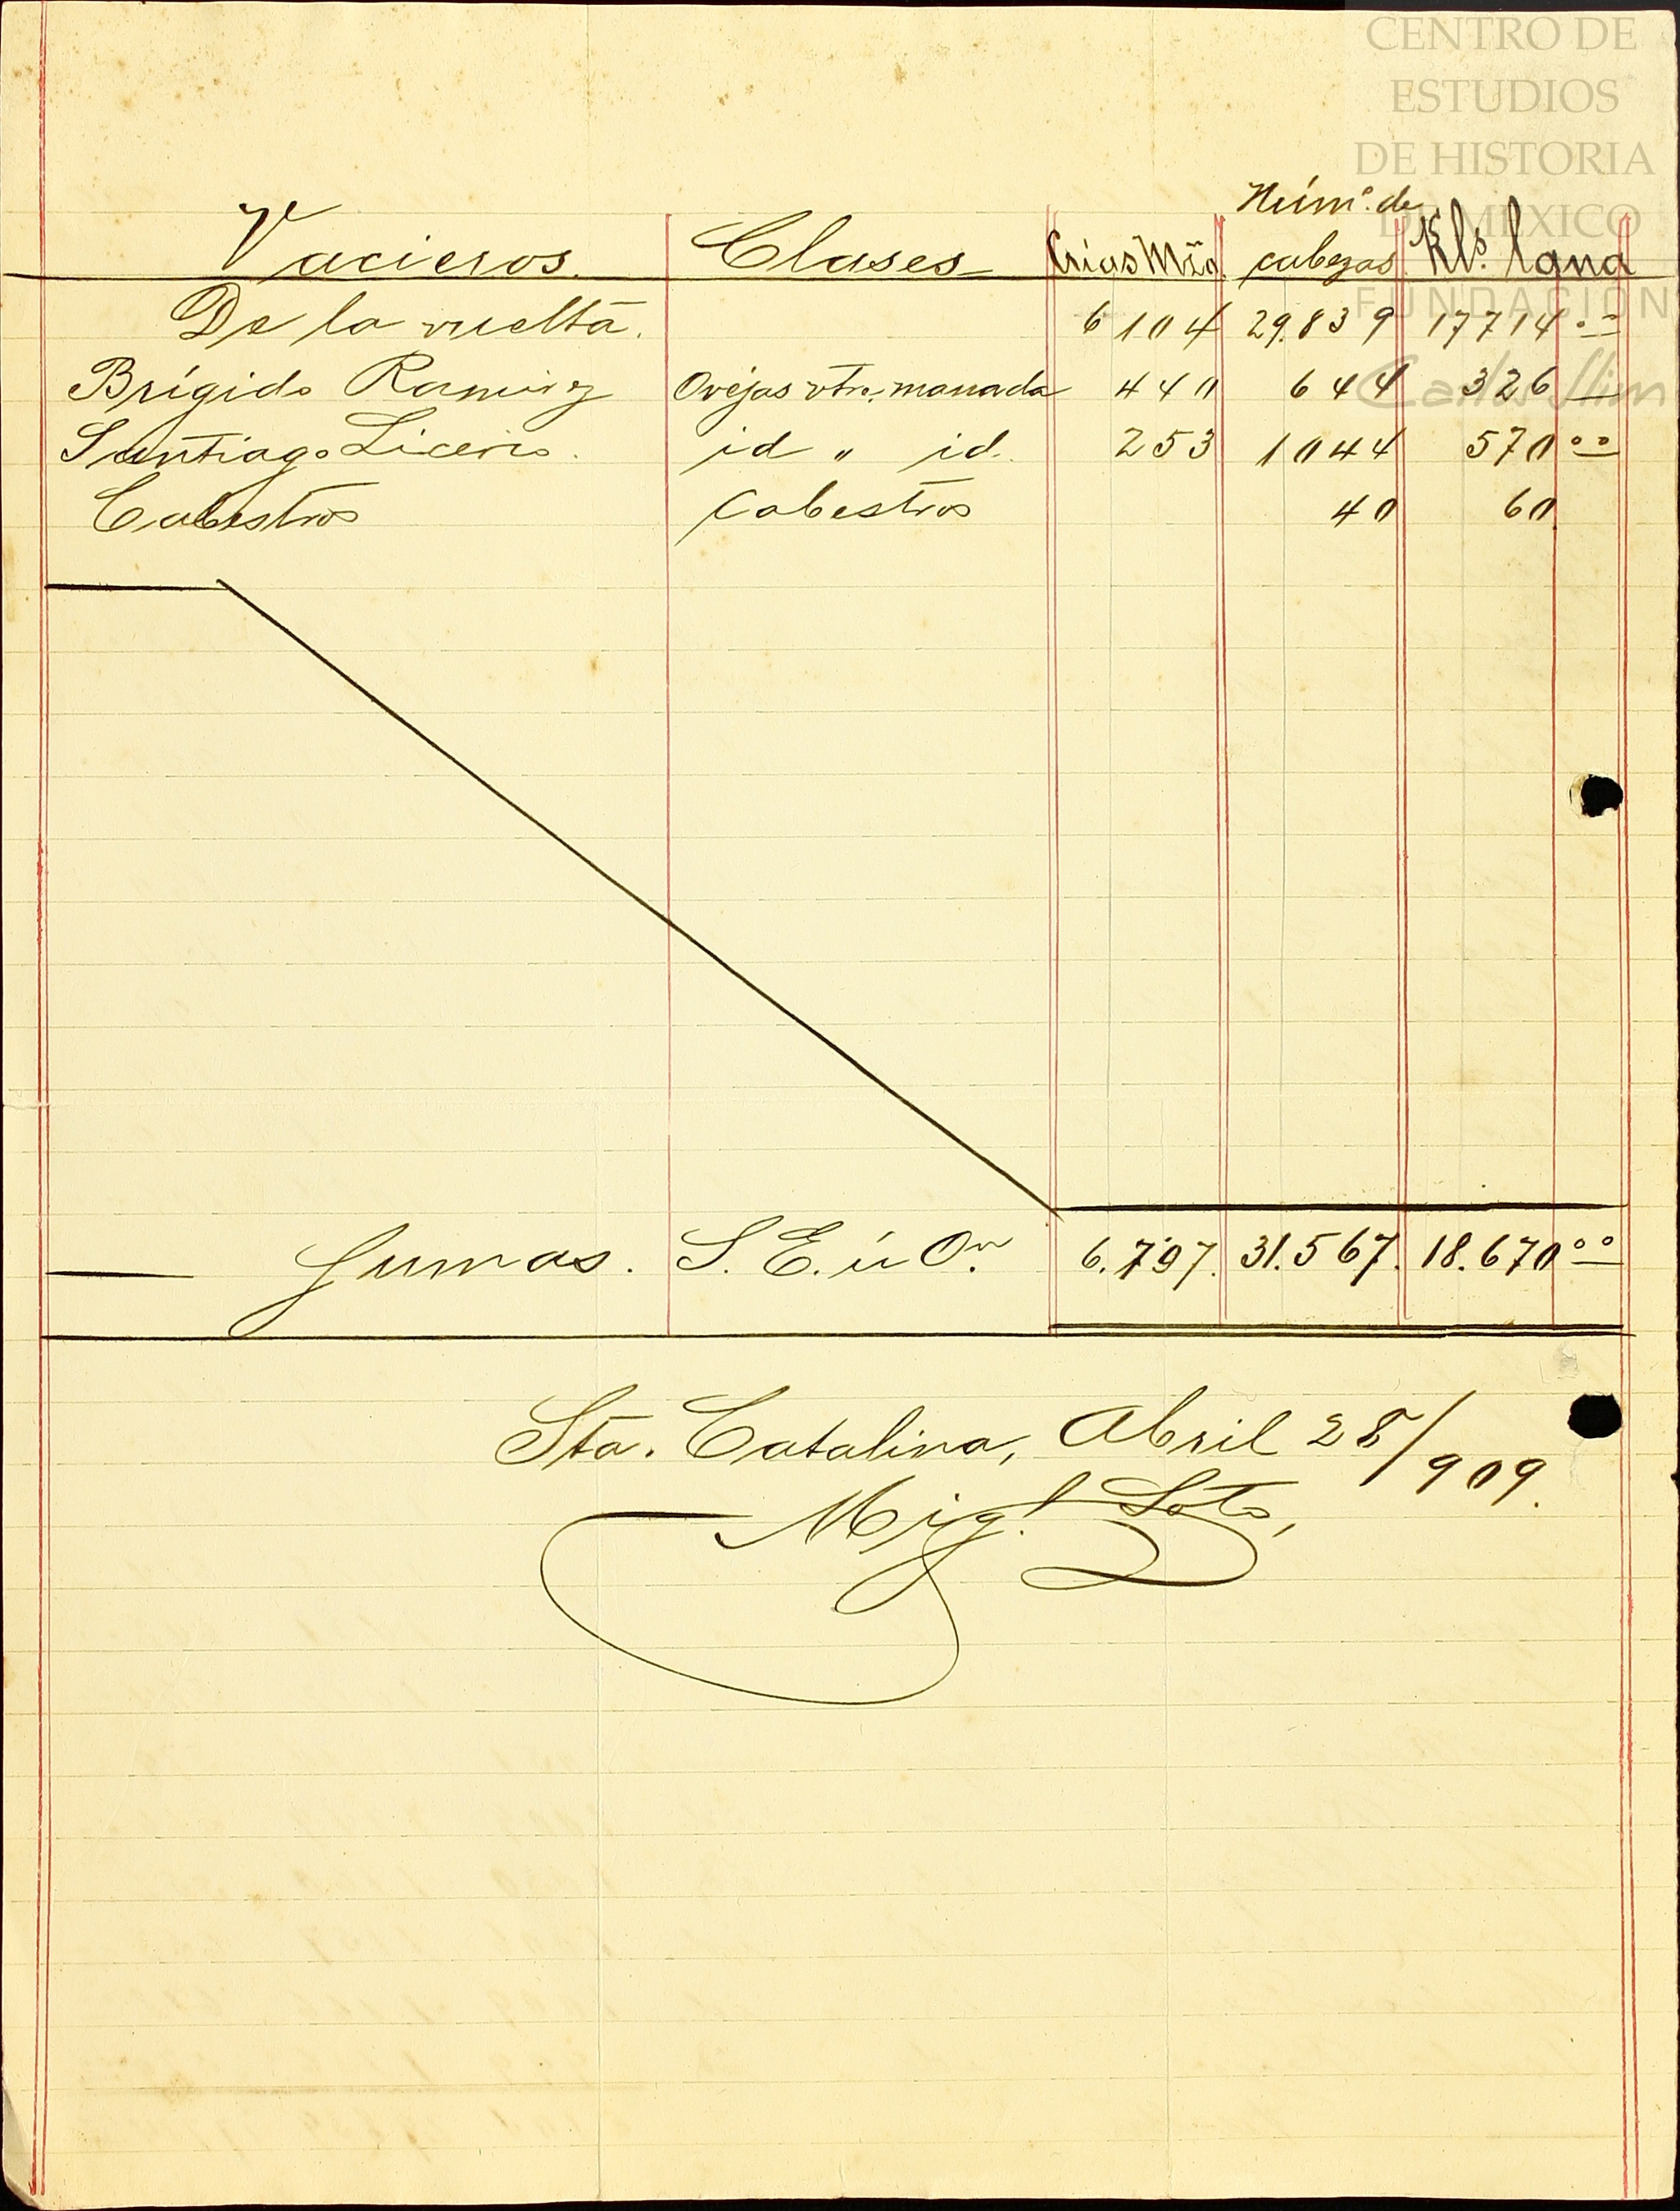 CENTRO DE
ESTUDIOS
DE HISTORIA
DE MEXICO
FUNDACIÓN
Carlos Slim
Núm.º de
Vacieros. Clases Crias cabezas Kls. lana
De la vuelta. 6104 29.839 17714 oo
Brígido Ramirez Ovejas vtre. manada 440 644 326
Santiago Licerio. id " id. 253 1044 570 oo
Cabestros Cabestros 40 60
Sumas. S. E. ú On. 6.797. 31.567. 18.670 oo
Sta. Catalina, Abril 28/909.
Migl. Soto,